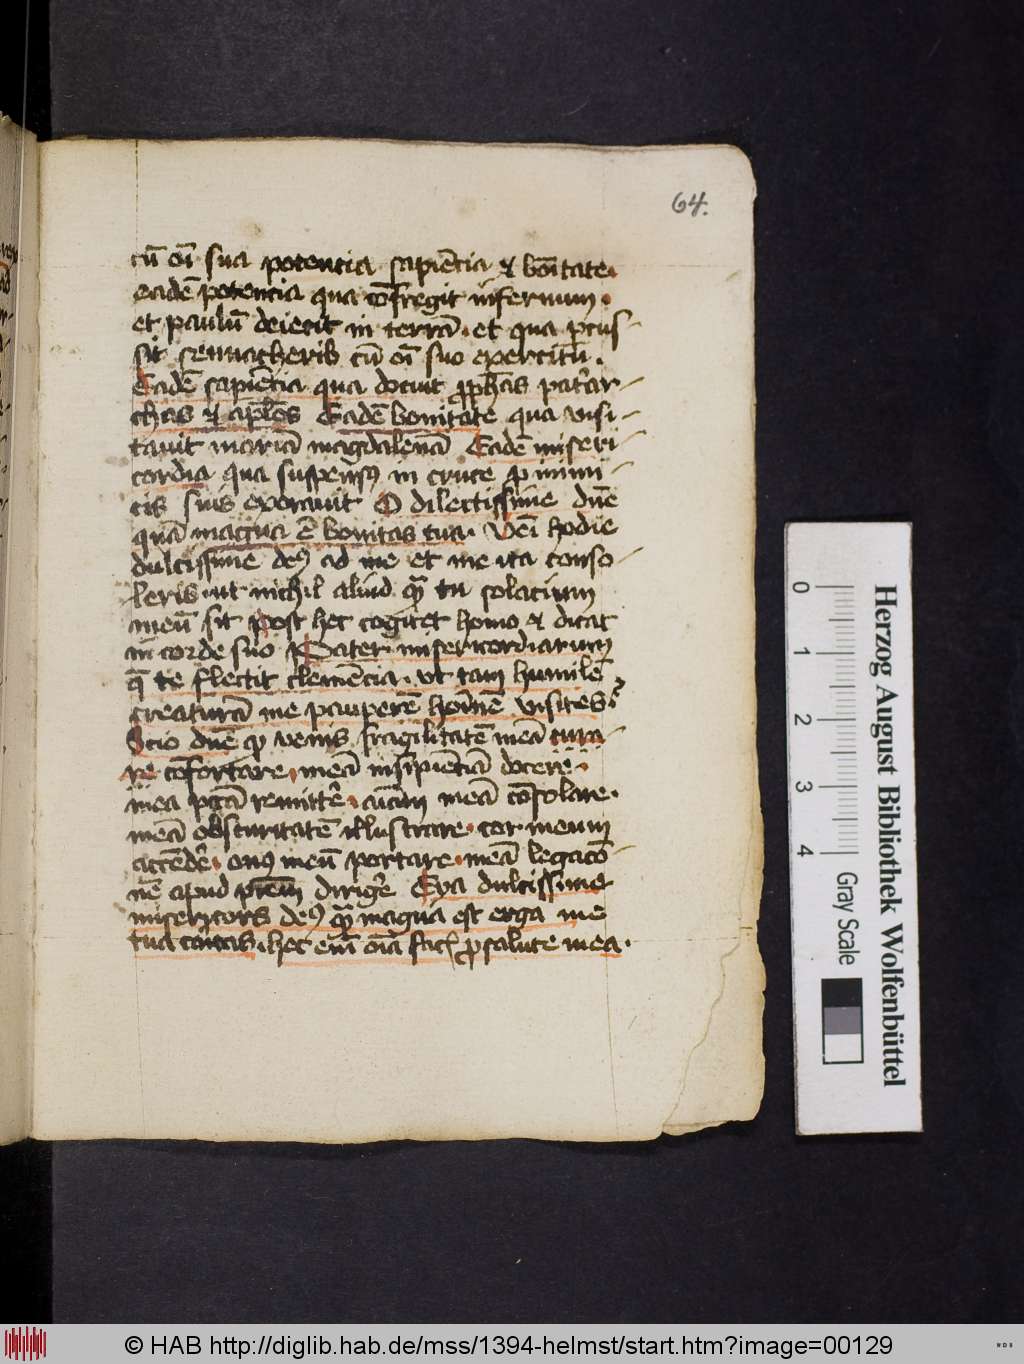 64.
cū oī sua potencia sapiēcia & boītate
eadē potencia qua cōfregit infernum
et paulū deiecit in terrā. et qua pcus-
sit sennacherib cū oī suo exercitu.
Eadē sapiēcia qua docuit pphas patar-
chas & aplos Eadē bonitate qua visi-
tauit mariā magdalenā Eadē miseri-
cordia qua suspensus in cruce p inimi-
cis suis exorauit O dilectissime dne
quā magna ē bonitas tua. Veni hodie
dulcissime deus ad me et me ita conso-
leris. ut nichil aliud quā tu solacium
meū sit post hec cogitet homo & dicat
in corde suo Pater misericordiarum
q te flectit clemēcia. ut tam humilē
creaturā me pauperē hoīnē visites
Scio dne q venis fragilitatē meā cura-
re cōfortare. meā insipiēciā docere.
mea pctā remittē. meā cōsolare.
meā obscuritatē illustrare. cor meum
accēdē. onus meū portare. meā legacō-
nē apud prem dirigē Eya dulcissime
misericors deus quā magna est erga me
tua cāitas. hec em oīa fac p salute mea.
Herzog August Bibliothek Wolfenbüttel
0 1 2 3 4 Gray Scale
© HAB http://diglib.hab.de/mss/1394-helmst/start.htm?image=00129